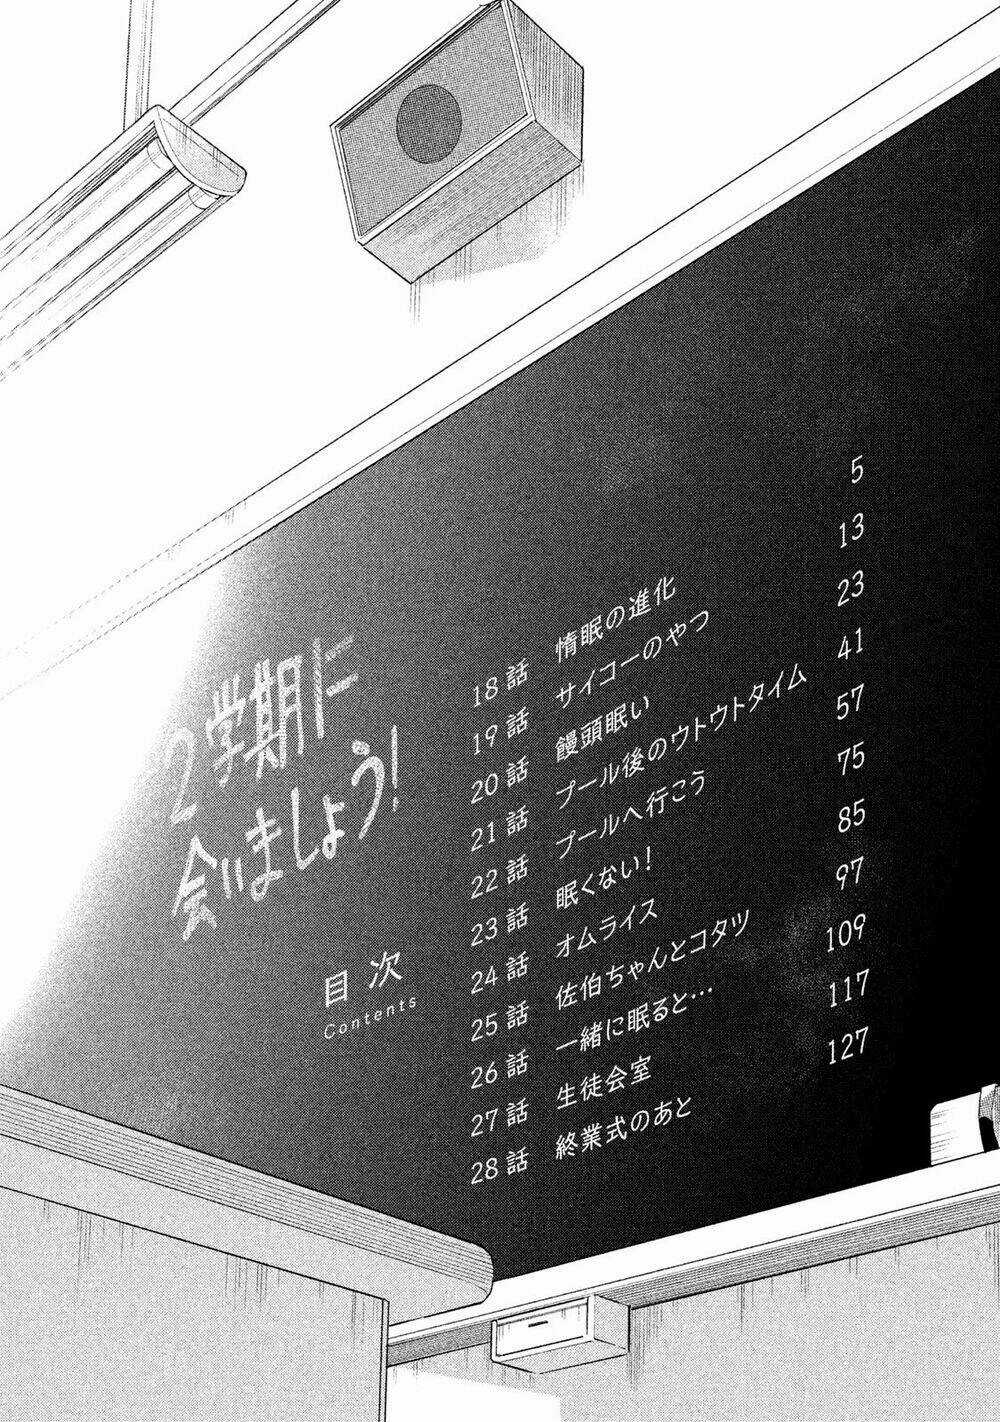 2学期に
会いましょう!
目次
Contents
18話 惰眠の進化 5
19話 サイコーのやつ 13
20話 饅頭眠い 23
21話 プール後のウトウトタイム 41
22話 プールへ行こう 57
23話 眠くない! 75
24話 オムライス 85
25話 佐伯ちゃんとコタツ 97
26話 一緒に眠ると… 109
27話 生徒会室 117
28話 終業式のあと 127